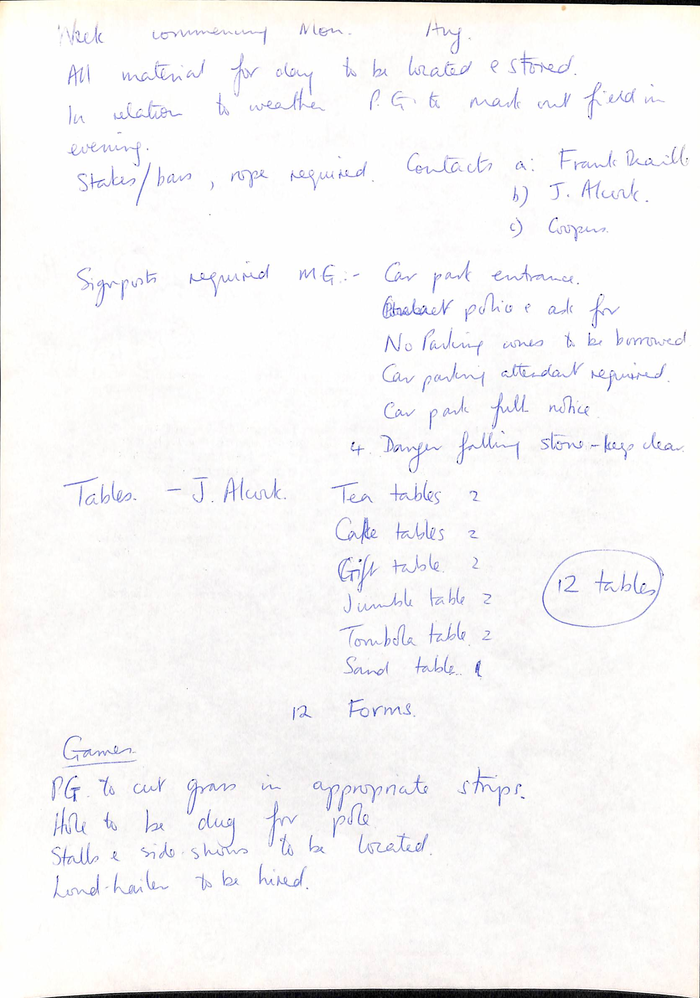 Week commencing Mon. Aug.
All material for day to be located & stored.
In relation to weather P.G. to mark out field in
evening.
Stakes/bars, rope required. Contacts a: Frank
b) J. Alcock.
c) Coopers.
Signposts required M.G. :- Car park entrance.
Contact police & ask for
No Parking cones to be borrowed
Car parking attendant required.
Car park full notice.
4. Danger falling stone - keep clear.
Tables. - J. Alcock. Tea tables 2
Cake tables 2
Gift table. 2
Jumble table 2
12 tables
Tombola table. 2
Sand table. 1
12 Forms.
Games.
P.G. to cut grass in appropriate strips.
Hole to be dug for pole
Stalls & side-shows to be located.
Loud-hailer to be hired.